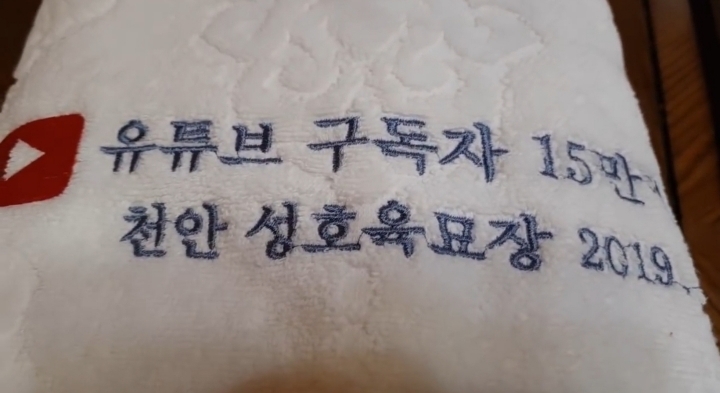 유튜브 구독자 15만
천안 성호육묘장 2019